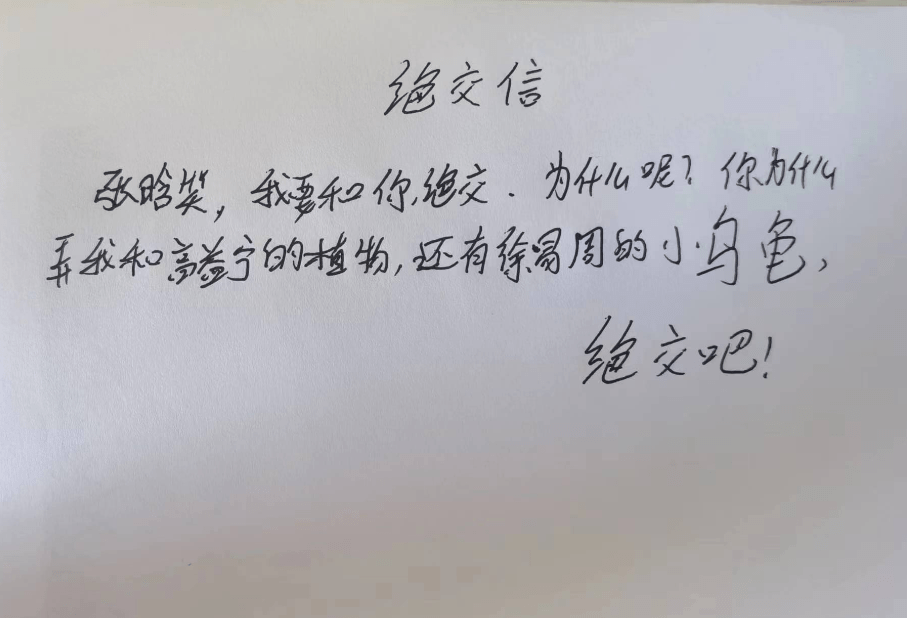 绝交信
张晗笑,我要和你绝交.为什么呢?你为什么
弄我和高益宁的植物,还有徐冒周的小乌龟,
绝交吧!